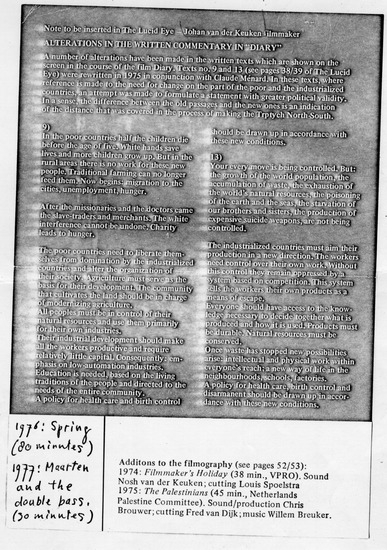 Note to be inserted in The Lucid Eye – Johan van der Keuken filmmaker
ALTERATIONS IN THE WRITTEN COMMENTARY IN "DIARY"
A number of alterations have been made in the written texts which are shown on the
screen in the course of the film Diary. Texts no. 9 and 13 (see pages 38/39 of The Lucid
Eye) were rewritten in 1975 in conjunction with Claude Ménard. In these texts, where
reference is made to the need for change on the part of the poor and the industrialized
countries, an attempt was made to formulate a statement with greater political validity.
In a sense, the difference between the old passages and the new ones is an indication
of the distance that was covered in the process of making the Trptych North South.
9)
In the poor countries half the children die
before the age of five. White hands save
lives and more children grow up. But in the
rural areas there is no work for these new
people. Traditional farming can no longer
feed them. Now begins: migration to the
cities, unemployment, hunger.
After the missionaries and the doctors came
the slave-traders and merchants. The white
interference cannot be undone. Charity
leads to hunger.
The poor countries need to liberate them-
selves from domination by the industrialized
countries and alter the organization of
their society. Agriculture must serve as the
basis for their development. The community
that cultivates the land should be in charge
of modernizing agriculture.
All peoples must be in control of their
natural resources and use them primarily
for their own industries.
Their industrial development should make
all the workers productive and require
relatively little capital. Consequently em-
phasis on low-automation industries.
Education is needed, based on the living
traditions of the people and directed to the
needs of the entire community.
A policy for health care and birth control
should be drawn up in accordance with
these new conditions.
13)
Your every move is being controlled. But:
the growth of the world population, the
accumulation of waste, the exhaustion of
the world's natural resources, the poisoning
of the earth and the seas, the starvation of
our brothers and sisters, the production of
expensive suicide weapons, are not being
controlled.
The industrialized countries must aim their
production in a new direction. The workers
need control over their own work. Without
this control they remain oppressed by a
system based on competition. This system
sells the workers their own products as a
means of escape.
Everyone should have access to the know-
ledge necessary to decide together what is
produced and how it is used. Products must
be durable. Natural resources must be
conserved.
Once waste has stopped new possibilities
arise: intellectual and physical work within
everyone's reach; a new way of life in the
neighbourhoods, schools, factories.
A policy for health care, birth control and
disarmament should be drawn up in accor-
dance with these new conditions.
1976: Spring
(80 minutes)
1977: Maarten
and the
double bass.
(30 minutes)
Additons to the filmography (see pages 52/53):
1974: Filmmaker's Holiday (38 min., VPRO). Sound
Nosh van der Keuken; cutting Louis Spoelstra
1975: The Palestinians (45 min., Netherlands
Palestine Committee). Sound/production Chris
Brouwer; cutting Fred van Dijk; music Willem Breuker.